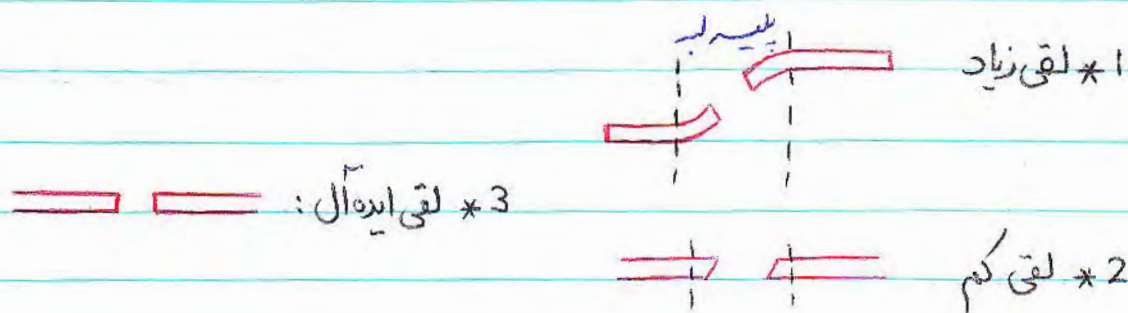 پلیسه لبه
1 * لقی زیاد
3 * لقی ایده‌آل :
2 * لقی کم